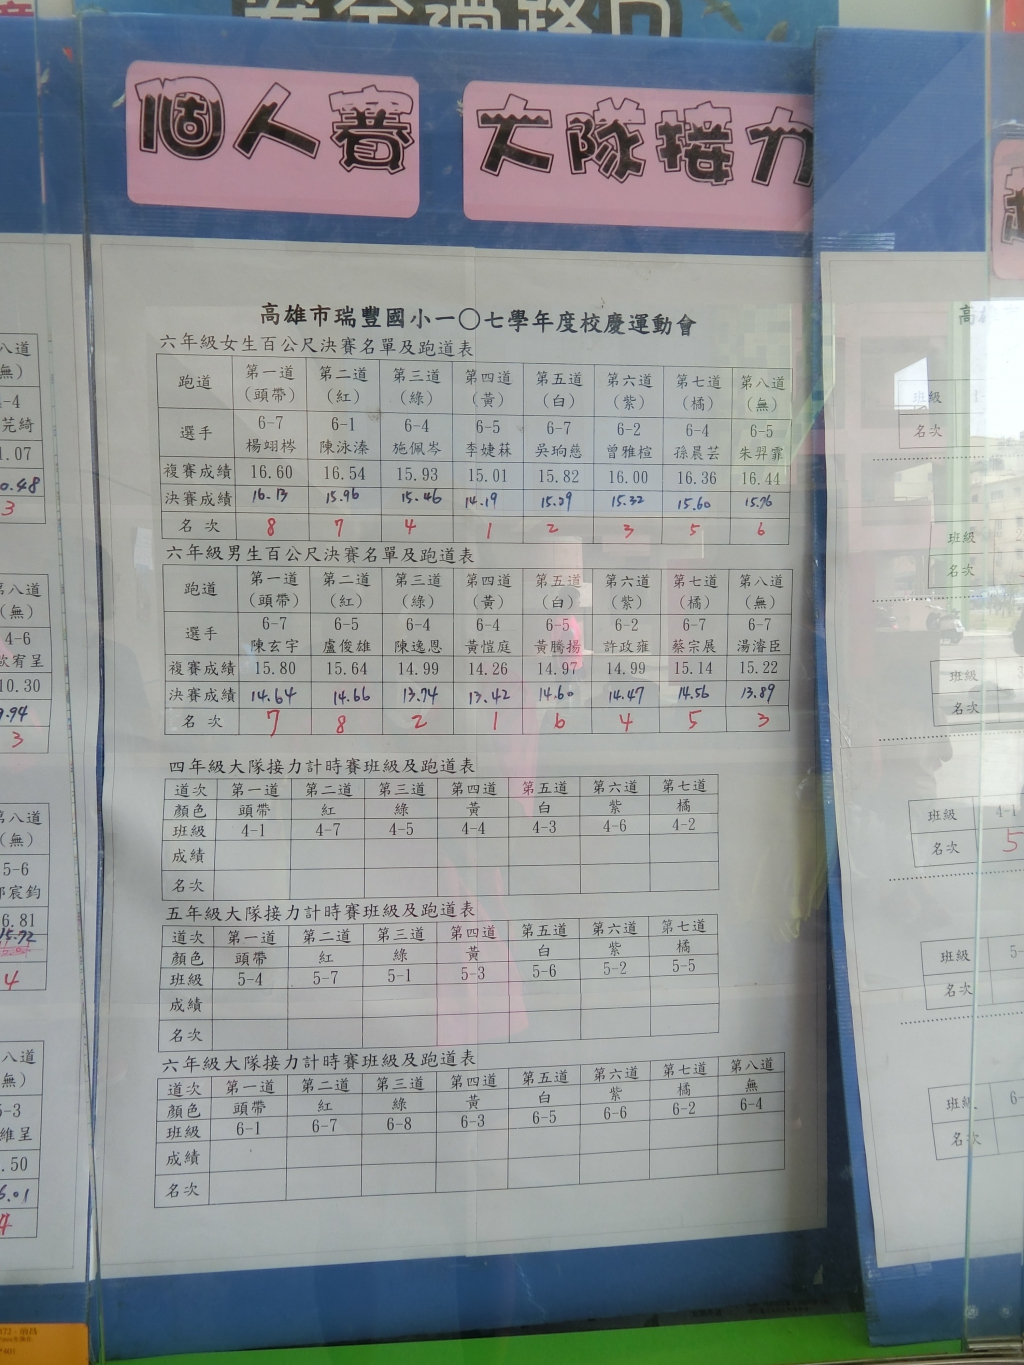 個人賽 大隊接力
高雄市瑞豐國小一〇七學年度校慶運動會
六年級女生百公尺決賽名單及跑道表
跑道 第一道（頭帶） 第二道（紅） 第三道（綠） 第四道（黃） 第五道（白） 第六道（紫） 第七道（橘） 第八道（無）
選手 6-7 6-1 6-4 6-5 6-7 6-2 6-4 6-5
楊翊梣 陳泳溱 施佩岑 李婕菻 吳玽慈 曾雅楦 孫晨芸 朱羿霏
複賽成績 16.60 16.54 15.93 15.01 15.82 16.00 16.36 16.44
決賽成績 16.13 15.96 15.46 14.19 15.29 15.32 15.60 15.76
名次 8 7 4 1 2 3 5 6
六年級男生百公尺決賽名單及跑道表
跑道 第一道（頭帶） 第二道（紅） 第三道（綠） 第四道（黃） 第五道（白） 第六道（紫） 第七道（橘） 第八道（無）
選手 6-7 6-5 6-4 6-4 6-5 6-2 6-7 6-7
陳玄宇 盧俊雄 陳逸恩 黃愷庭 黃騰揚 許政雍 蔡宗展 湯濬臣
複賽成績 15.80 15.64 14.99 14.26 14.97 14.99 15.14 15.22
決賽成績 14.64 14.66 13.74 13.42 14.60 14.47 14.56 13.89
名次 7 8 2 1 6 4 5 3
四年級大隊接力計時賽班級及跑道表
道次 第一道 第二道 第三道 第四道 第五道 第六道 第七道
顏色 頭帶 紅 綠 黃 白 紫 橘
班級 4-1 4-7 4-5 4-4 4-3 4-6 4-2
成績
名次
五年級大隊接力計時賽班級及跑道表
道次 第一道 第二道 第三道 第四道 第五道 第六道 第七道
顏色 頭帶 紅 綠 黃 白 紫 橘
班級 5-4 5-7 5-1 5-3 5-6 5-2 5-5
成績
名次
六年級大隊接力計時賽班級及跑道表
道次 第一道 第二道 第三道 第四道 第五道 第六道 第七道 第八道
顏色 頭帶 紅 綠 黃 白 紫 橘 無
班級 6-1 6-7 6-8 6-3 6-5 6-6 6-2 6-4
成績
名次
八道
（無）
-4
芫綺
1.07
0.48
3
第八道
（無）
4-6
歐宥呈
10.30
9.94
3
第八道
（無）
5-6
宸鈞
6.81
15.72
4
八道
無）
5-3
維呈
.50
5.01
4
高雄
班級
名次
班級
名次
班級
名次
班級 4-1
名次 5
班級 5-
名次
班級 6-
名次